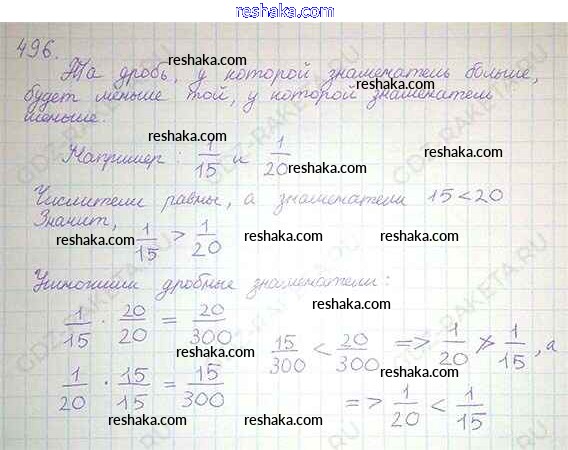 reshaka.com
496. reshaka.com
Та дробь, у которой знаменатель больше,
будет меньше той, у которой знаменатель
меньше.
reshaka.com reshaka.com reshaka.com
Например: 1/15 и 1/20
reshaka.com reshaka.com
Числители равны, а знаменатели 15 < 20
Значит, 1/15 > 1/20
reshaka.com reshaka.com reshaka.com reshaka.com
Умножим дробные знаменатели:
reshaka.com
1/15 · 20/20 = 20/300
15/300 < 20/300 => 1/20 > 1/15, а
reshaka.com reshaka.com
1/20 · 15/15 = 15/300
=> 1/20 < 1/15
reshaka.com reshaka.com reshaka.com
GDZ-RAKETA.RU